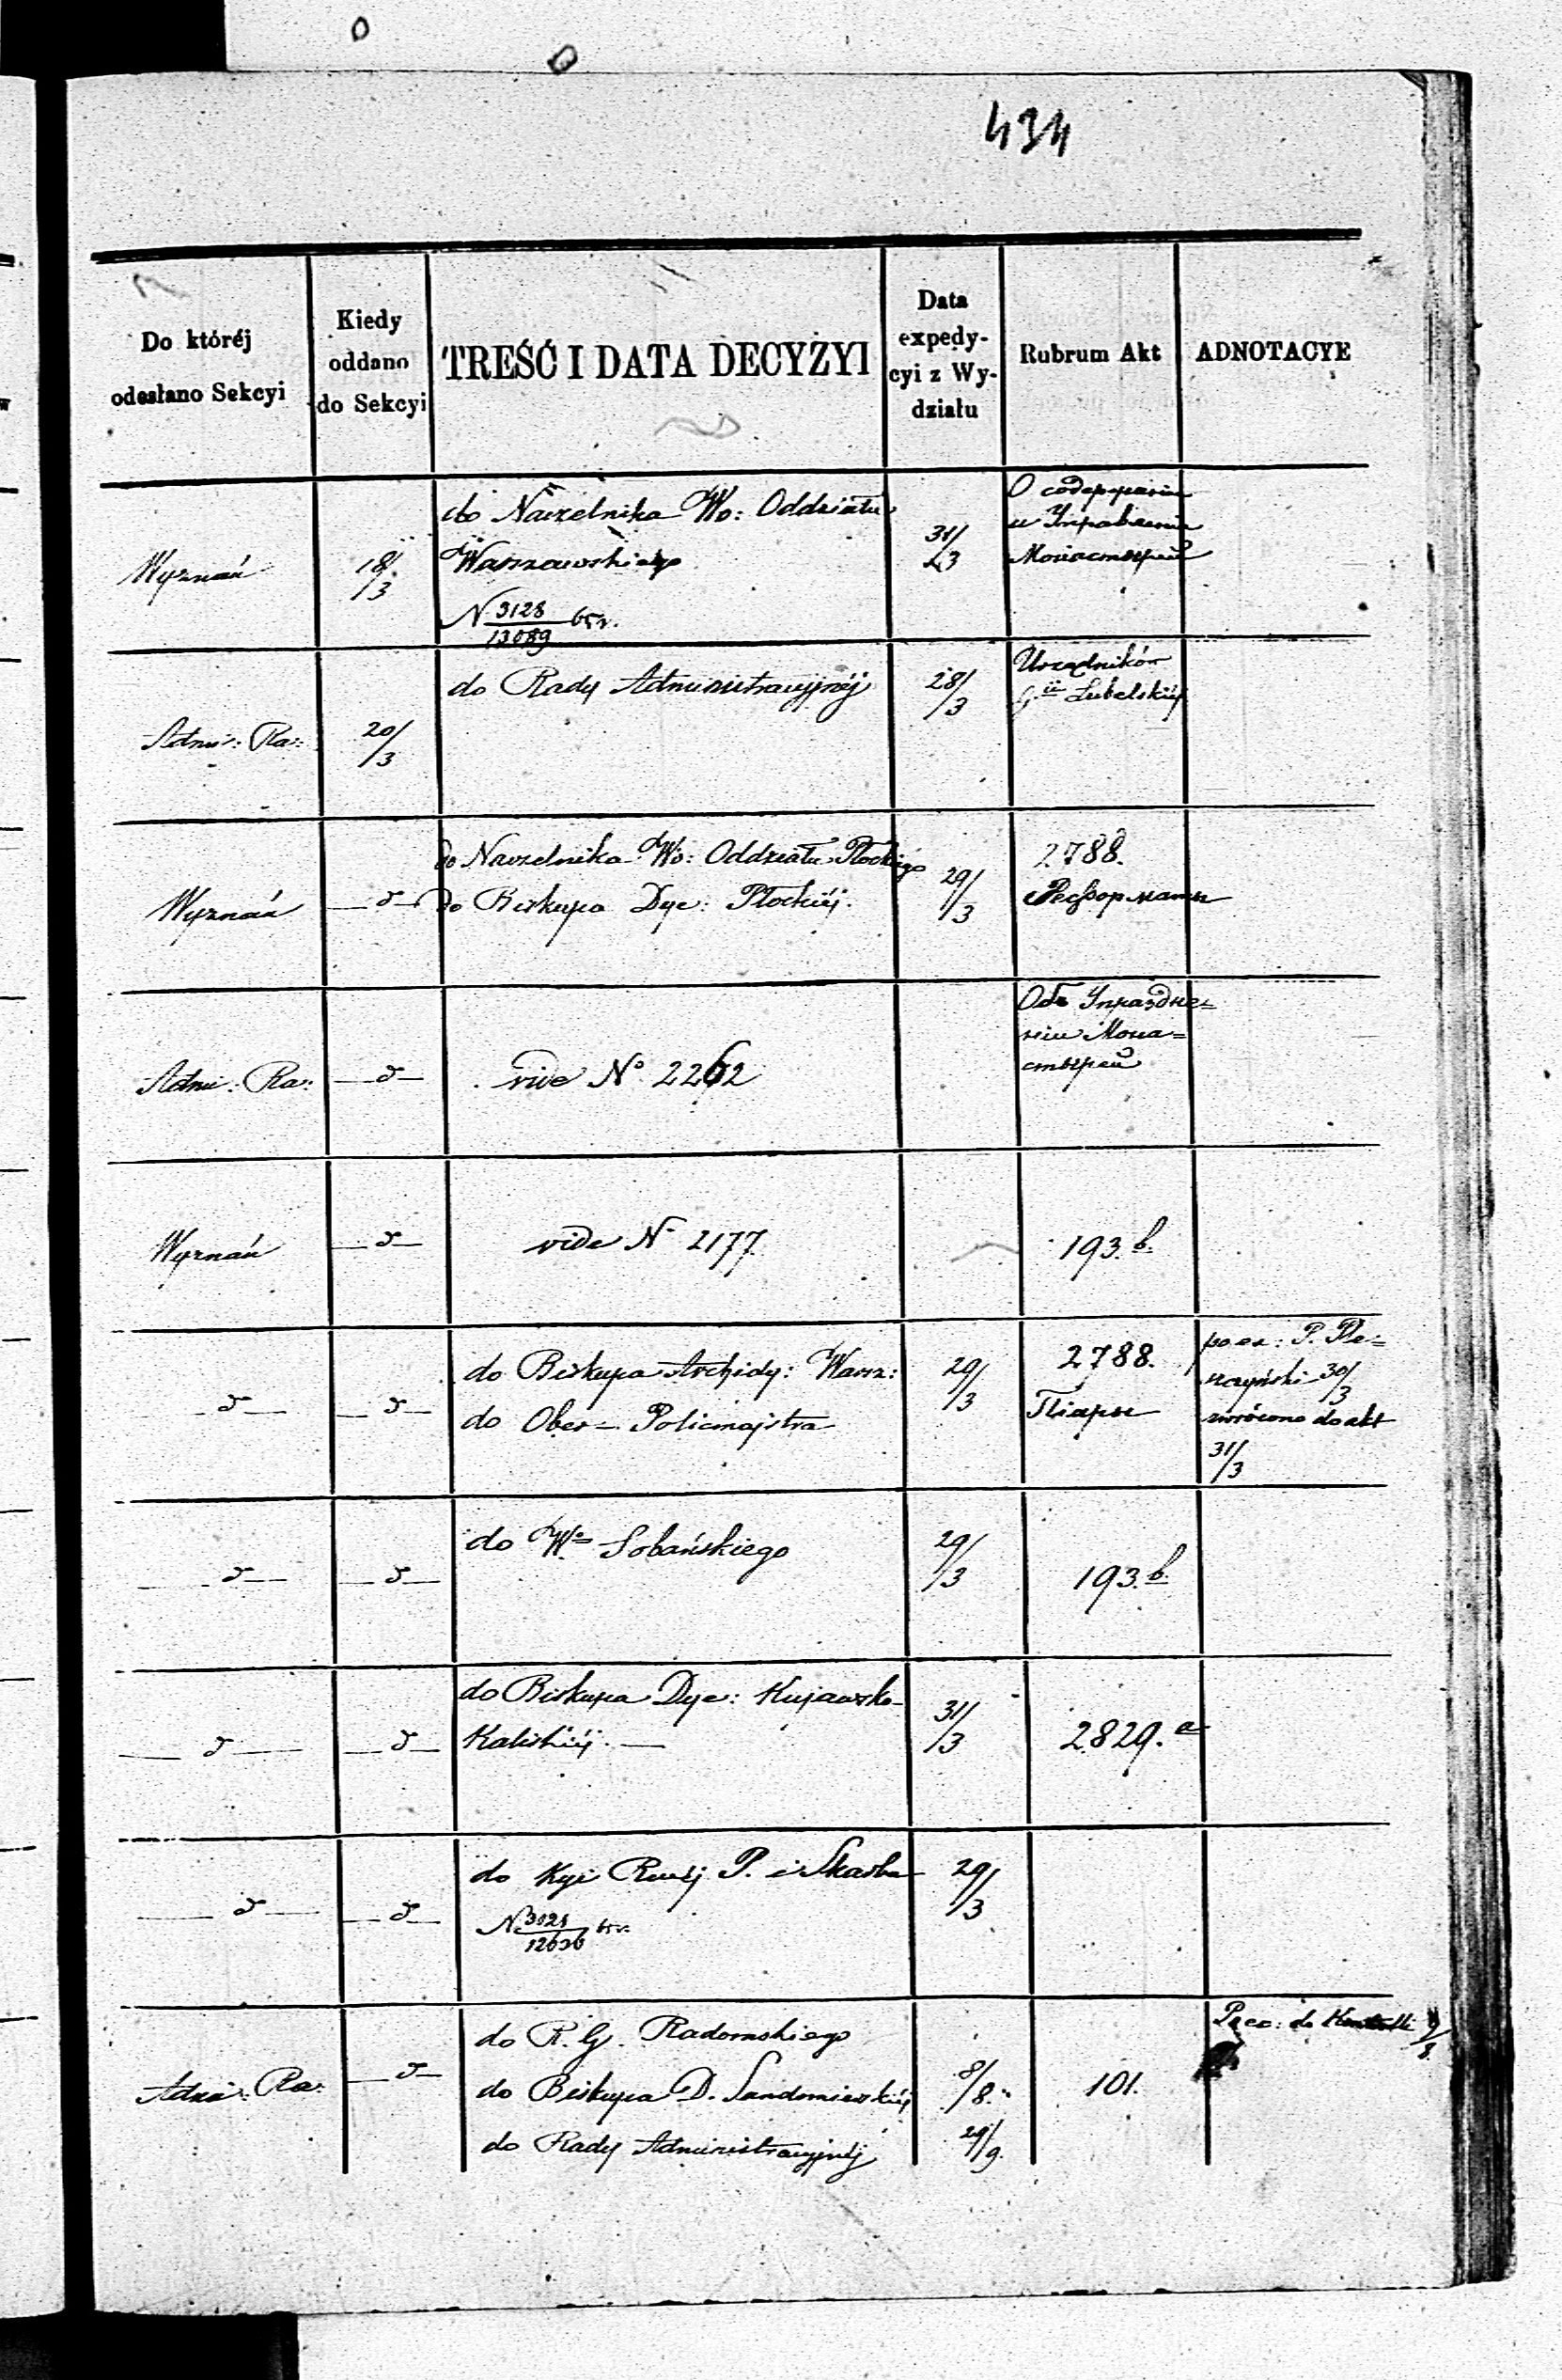 434
Do któréj
odesłano Sekcyi
Kiedy
oddano
do Sekcyi
TREŚĆ I DATA DECYZYI
Data
expedy-
cyi z Wy-
działu
Rubrum Akt
ADNOTACYE
Wyznań
18/3
do Naczelnika Wo: Oddziału
Warszawskiego
N 3128/13089 65 r.
31/3
О содержании
и Управлении
Монастырей
Admi: Ra:
20/3
do Rady Administracyjnéj
28/3
Urzędników
Gii Lubelskiéj
Wyznań
— d —
do Naczelnika Wo: Oddziału Płockiego
do Biskupa Dye: Płockiéj.
29/3
2788.
Реформаты
Admi: Ra:
— d —
vide No 2262
Объ Упраздне=
нiи Мона=
стырей
Wyznań
— d —
vide N 2177.
193.b.
— d —
— d —
do Biskupa Archidy: Warsz:
do Ober-Policmajstra
29/3
2788.
Пiары
P. Ple=
szczyński 30/3
zwrócono do akt
31/3
— d —
— d —
do Wo Sobańskiego
29/3
193.b.
— d —
— d —
do Biskupa Dye: Kujawsko-
Kaliskiéj. —
31/3
2829.a
— d —
— d —
do Kyi Rząéj P. i Skarbu
N 3121/12636 65 r.
29/3
Admi: Ra:
— d —
do R. G. Radomskiego
do Biskupa D. Sandomierskiéj
do Rady Administracyjnéj
8/8.
29/9.
101.